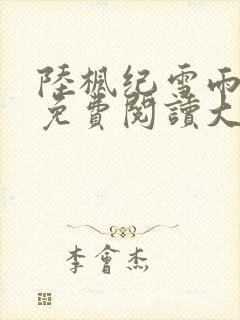 陸楓纪雪雨
免費閱讀大
李會杰